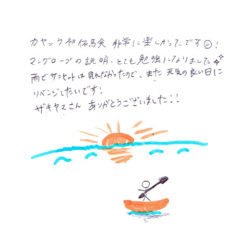 カヤック初体験 非常に楽しかったです☺!
マングローブの説明もとても勉強になりました
雨でサンセットは見れなかったので、また 天気の良い日に
リベンジしたいです!
ザキヤマさん ありがとうございました!!